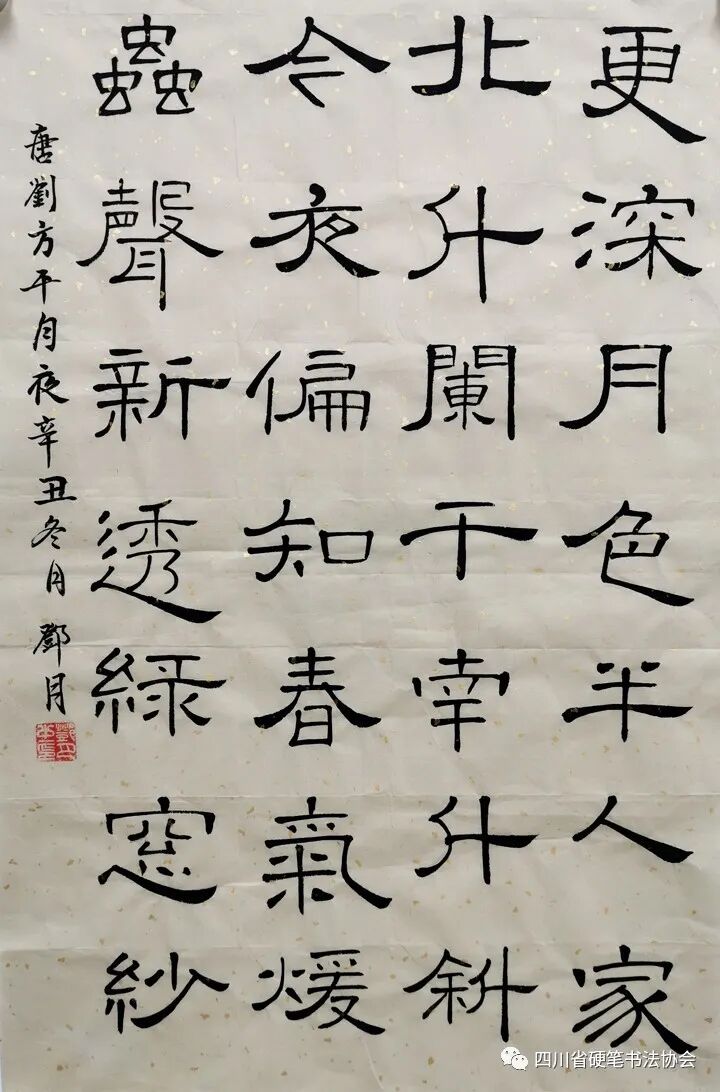 更深月色半人家
北斗闌干南斗斜
今夜偏知春氣煖
蟲聲新透綠窻紗
唐劉方平月夜辛丑冬月 鄧月
四川省硬笔书法协会